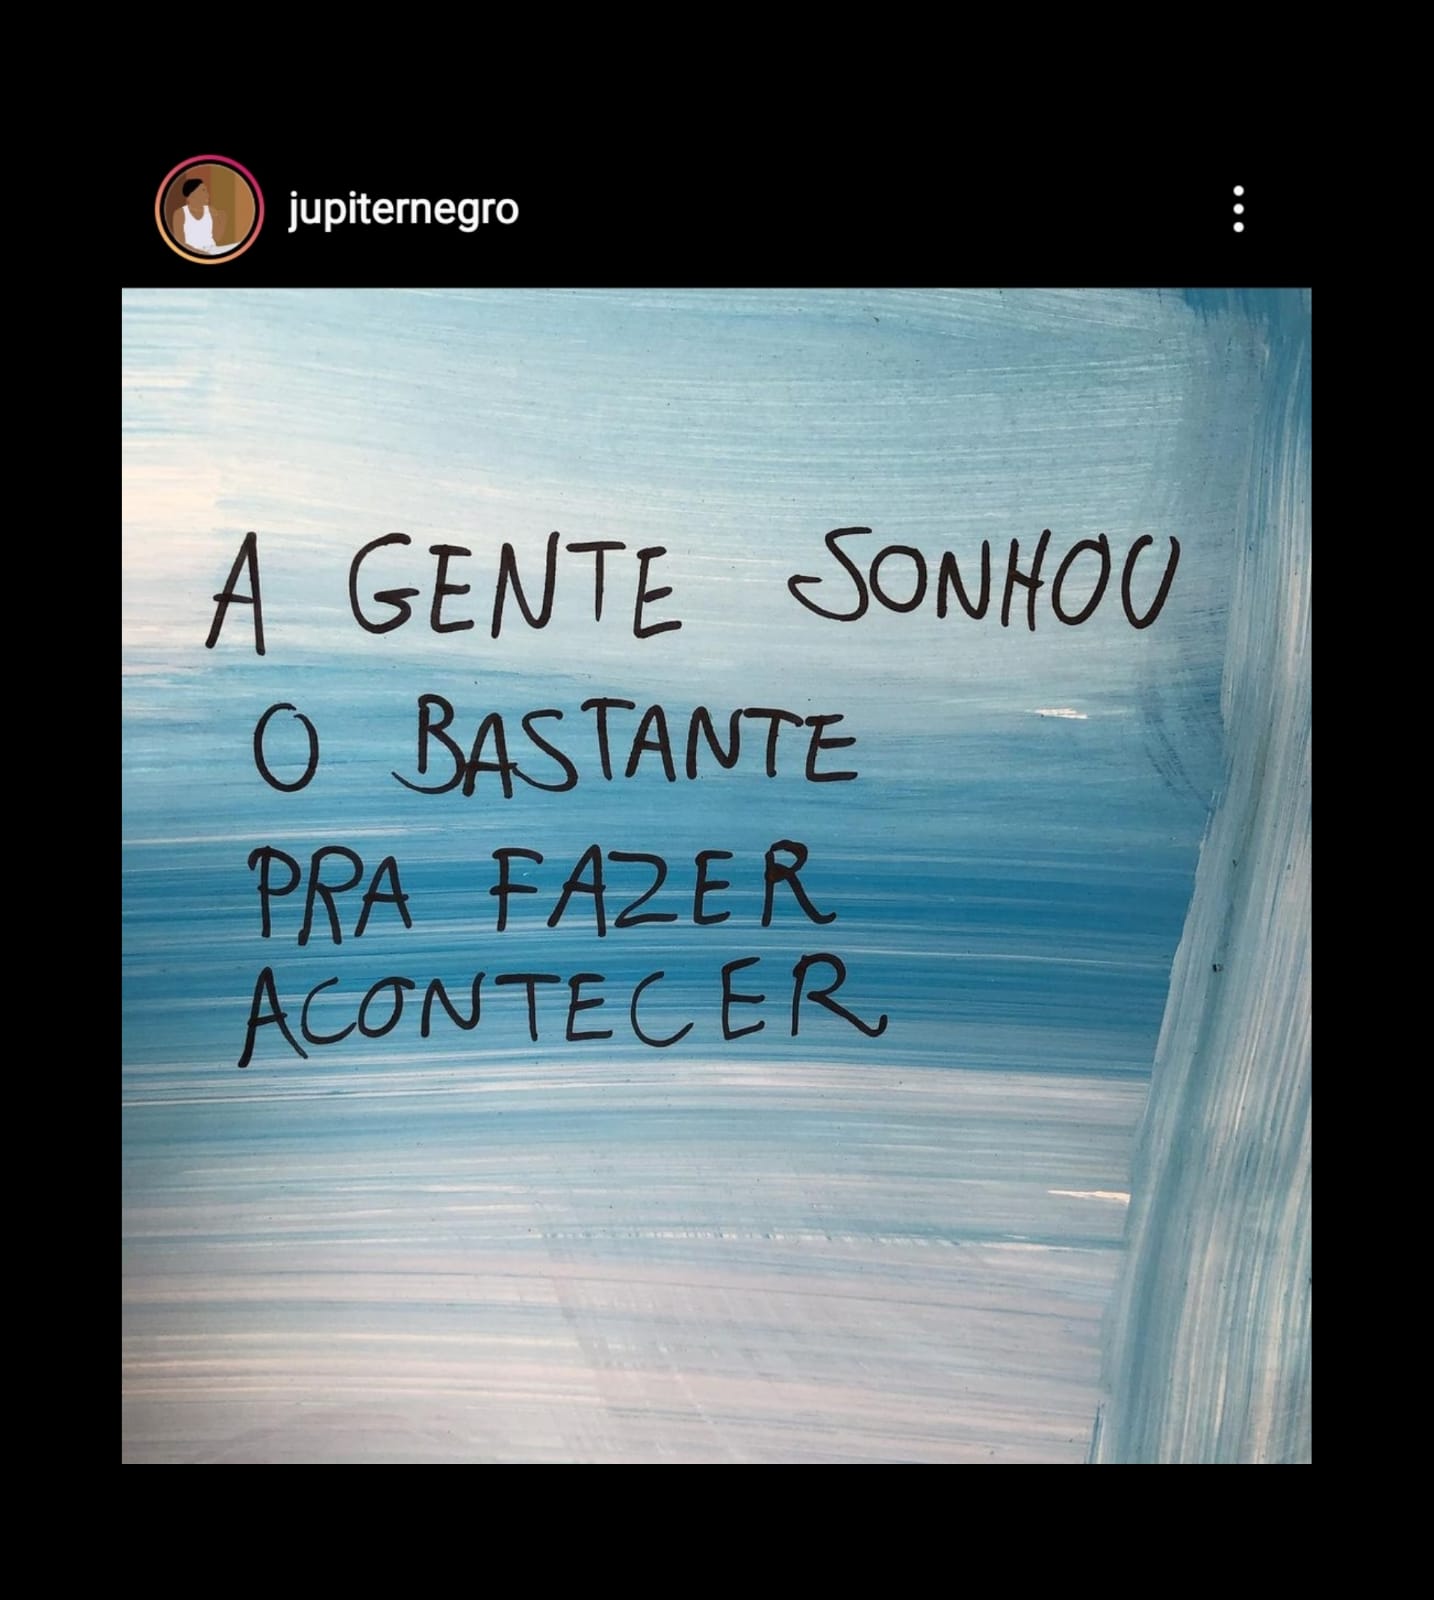 jupiternegro
A GENTE SONHOU
O BASTANTE
PRA FAZER
ACONTECER